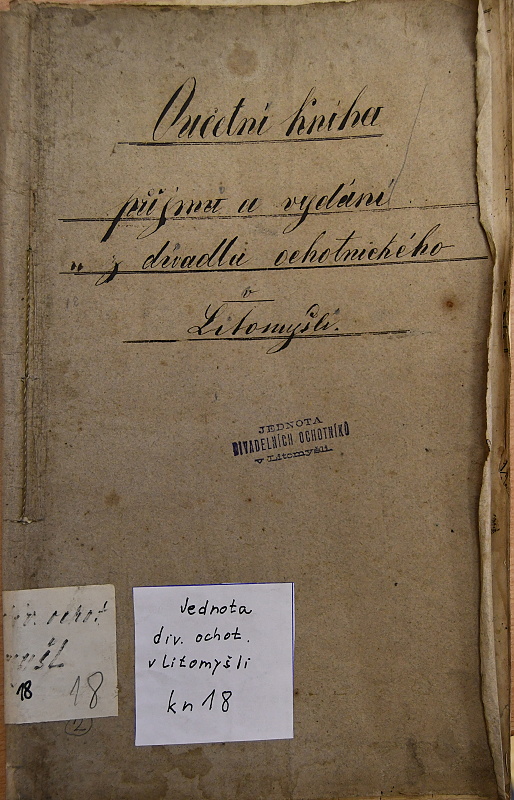 Oučetní kniha
příjmu a vydání
z divadla ochotnického
v
Litomyšli.
JEDNOTA
DIVADELNÍCH OCHOTNÍKŮ
v Litomyšli
div. ochot
myšl
18 18
2
Jednota
div. ochot.
v Litomyšli
kn 18